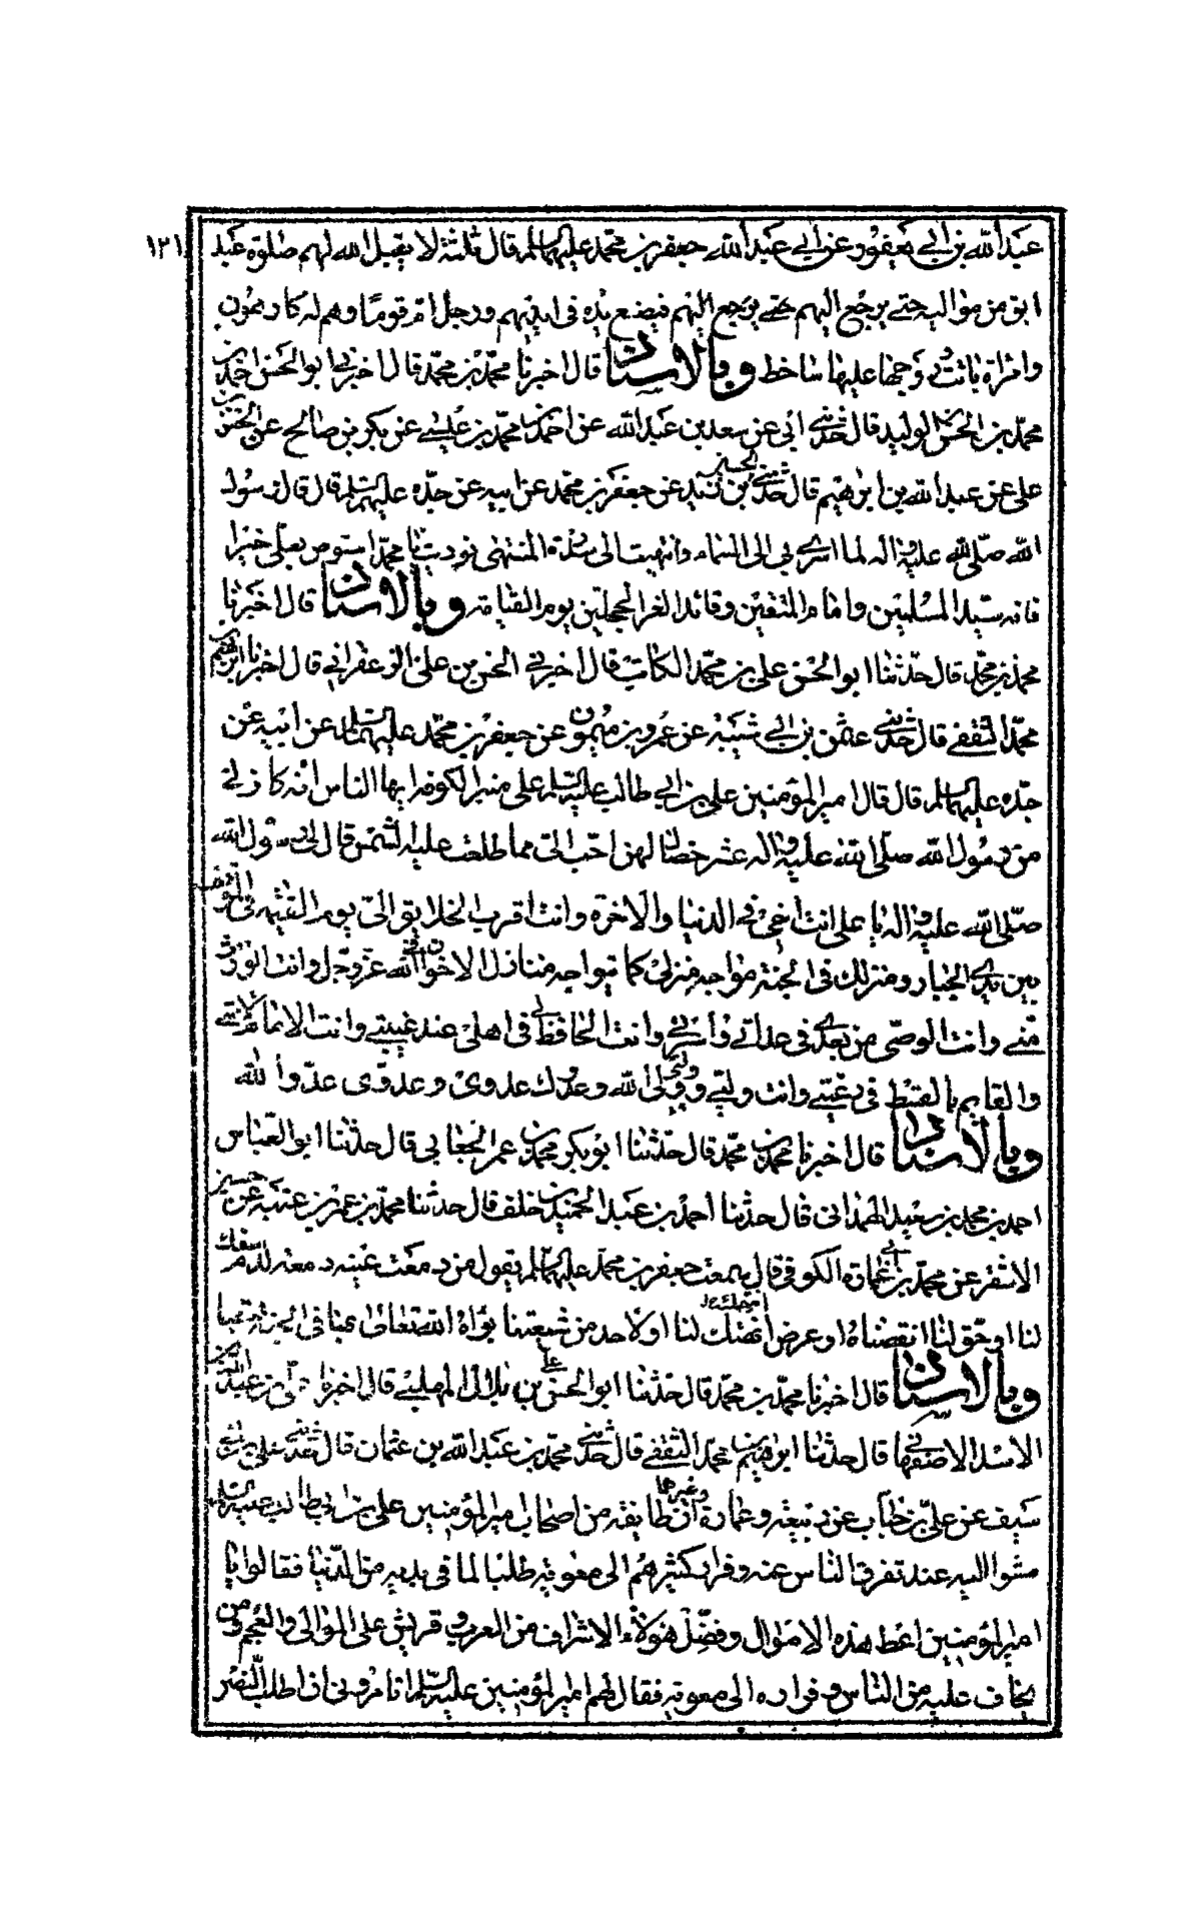 ١٢١
عبد الله بن ابي يعفور عن ابي عبد الله جعفر بن محمد عليهما السلم قال ثلثة لا يقبل الله لهم صلوة عبد
ابق من مواليه حتى يرجع اليهم حتى يرجع اليهم فيضع يده في ايديهم ورجل ام قوما وهم له كارهون
وامراة باتت وزوجها عليها ساخط وبالاسناد قال اخبرنا محمد بن محمد قال اخبرني ابو الحسن احمد بن
محمد بن الحسن بن الوليد قال حدثني ابي عن سعد بن عبد الله عن احمد بن محمد بن عيسى عن بكر بن صالح عن الحسن بن
علي عن عبد الله بن ابرهيم قال حدثني الحسين بن زيد عن جعفر بن محمد عن ابيه عن جده عليهم السلم قال قال رسول
الله صلى الله عليه واله لما اسري بي الى السماء وانتهيت الى سدرة المنتهى نوديت يا محمد استوص بعلي خيرا
فانه سيد المسلمين وامام المتقين وقائد الغر المحجلين يوم القيامة وبالاسناد قال اخبرنا
محمد بن محمد قال حدثنا ابو الحسن علي بن محمد الكاتب قال اخبرني الحسن بن علي الزعفراني قال اخبرنا ابرهيم بن
محمد الثقفي قال حدثني عثمن بن ابي شيبه عن عمرو بن ميمون عن جعفر بن محمد عليهما السلم عن ابيه عن
جده عليهما السلم قال قال امير المؤمنين علي بن ابي طالب عليه السلم على منبر الكوفة ايها الناس انه كان لي
من رسول الله صلى الله عليه واله عشر خصال لهن احب الي مما طلعت عليه الشمس قال لي رسول الله
صلى الله عليه واله يا علي انت اخي في الدنيا والاخرة وانت اقرب الخلايق الي يوم القيمة في الموقف
بين يدي الجبار ومنزلك في الجنة مواجه منزلي كما تتواجه منازل الاخوان في الله عز وجل وانت الوارث
مني وانت الوصي من بعدي في عداتي واسرتي وانت الحافظ لي في اهلي عند غيبتي وانت الامام لامتي
والقايم بالقسط في رعيتي وانت وليي ووليي ولي الله وعدوك عدوي وعدوي عدو الله
وبالاسناد قال اخبرنا محمد بن محمد قال حدثنا ابو بكر محمد بن عمر الجعابي قال حدثنا ابو العباس
احمد بن محمد بن سعيد الهمداني قال حدثنا احمد بن عبد الحميد بن خلف قال حدثنا محمد بن عمر بن عتبه عن حسين
الاشقر عن محمد بن ابي عمارة الكوفي قال سمعت جعفر بن محمد عليهما السلم يقول من دمعت عينه دمعه لدم سفك
لنا او حق لنا انقصناه او عرض انتهك لنا او لاحد من شيعتنا بواه الله تعالى بها في الجنة حقبا
وبالاسناد قال اخبرنا محمد بن محمد قال حدثنا ابو الحسن علي بن بلال المهلبي قال اخبرنا علي بن عبد الله بن
الاسد الاصفهاني قال حدثنا ابرهيم بن محمد الثقفي قال حدثني محمد بن عبد الله بن عثمان قال حدثني علي بن
سيف عن علي بن خباب عن ربيعة وعمارة وغيرهما ان طايفة من اصحاب امير المؤمنين علي بن ابي طالب عليه السلم
مشوا اليه عند تفرق الناس عنه وفرار كثير هم الى معوية طلبا لما في يديه من الدنيا فقالوا يا
امير المؤمنين اعط هذه الاموال وفضل هؤلاء الاشراف من العرب وقريش على الموالى والعجم ومن
يخاف عليه من الناس وفراره الى معوية فقال لهم امير المؤمنين عليه السلم اتامروني ان اطلب النصر